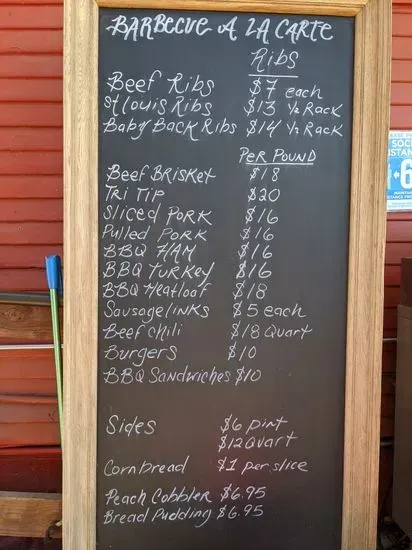 Barbecue A La Carte
Ribs
Beef Ribs $7 each
St Louis Ribs $13 ½ Rack
Baby Back Ribs $14 ½ Rack
Per Pound
Beef Brisket $18
Tri Tip $20
Sliced Pork $16
Pulled Pork $16
BBQ HAM $16
BBQ Turkey $16
BBQ Meatloaf $18
Sausage links $5 each
Beef Chili $18 Quart
Burgers $10
BBQ Sandwiches $10
Sides $6 pint
$12 Quart
Cornbread $1 per slice
Peach Cobbler $6.95
Bread Pudding $6.95
SOC
STAN
6
MAINTAI